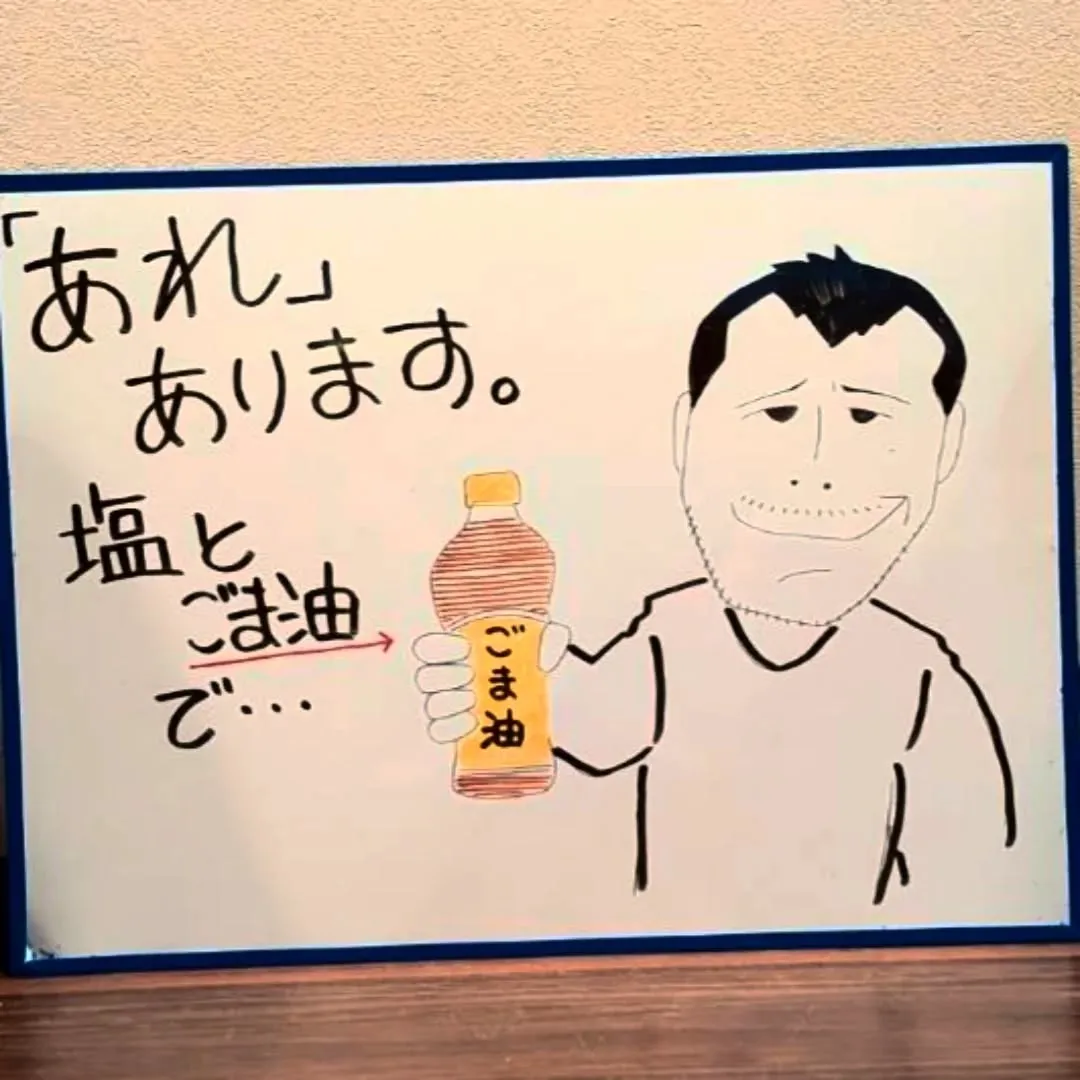 「あれ」
あります。
塩と
ごま油
で…
ごま油